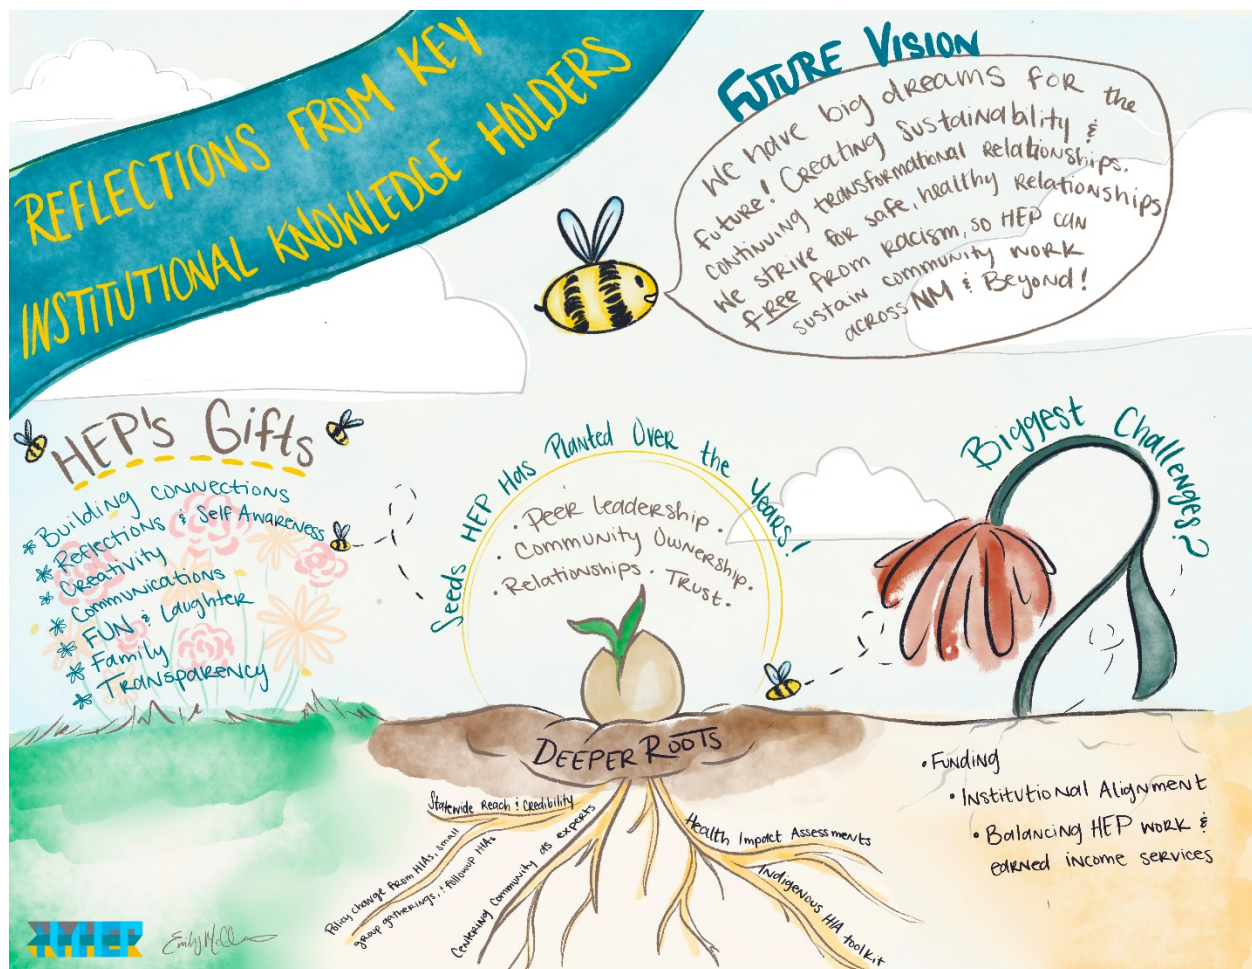 REFLECTIONS FROM KEY
INSTITUTIONAL KNOWLEDGE HOLDERS
FUTURE VISION
We have big dreams FOR the
future! Creating Sustainability &
continuing transformational Relationships.
We strive for safe, healthy Relationships
free from racism, so HEP can
sustain community work
across NM & Beyond!
HEP's Gifts
* Building connections
* Reflections & Self Awareness
* Creativity
* Communications
* FUN & Laughter
* Family
* Transparency
Seeds HEP Has Planted Over the Years!
· Peer Leadership ·
· Community Ownership ·
· Relationships · Trust ·
Biggest Challenges?
DEEPER ROOTS
Statewide Reach & Credibility
Policy change from HIAs, small
group gatherings, & followup HIAs
Centering Community as experts
Health Impact Assessments
Indigenous HIA toolkit
• Funding
• Institutional Alignment
• Balancing HEP work &
earned income services
NMHEP